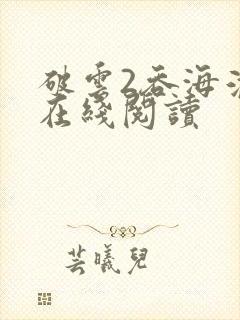 破雲2吞海
在綫閱讀
芸曦兒